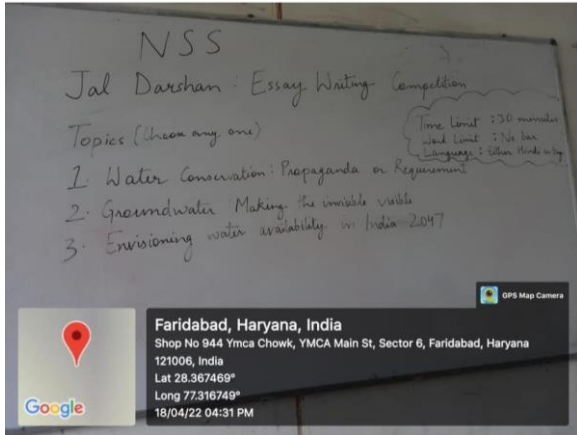 NSS
Jal Darshan : Essay Writing Competition
Topics (Choose any one)
Time Limit : 30 minutes
Word Limit : No bar
Language : Either Hindi or Eng
1. Water Conservation : Propaganda or Requirement
2. Groundwater : Making the invisible visible
3. Envisioning water availability in India 2047
GPS Map Camera
Faridabad, Haryana, India
Shop No 944 Ymca Chowk, YMCA Main St, Sector 6, Faridabad, Haryana
121006, India
Lat 28.367469°
Long 77.316749°
18/04/22 04:31 PM
Google